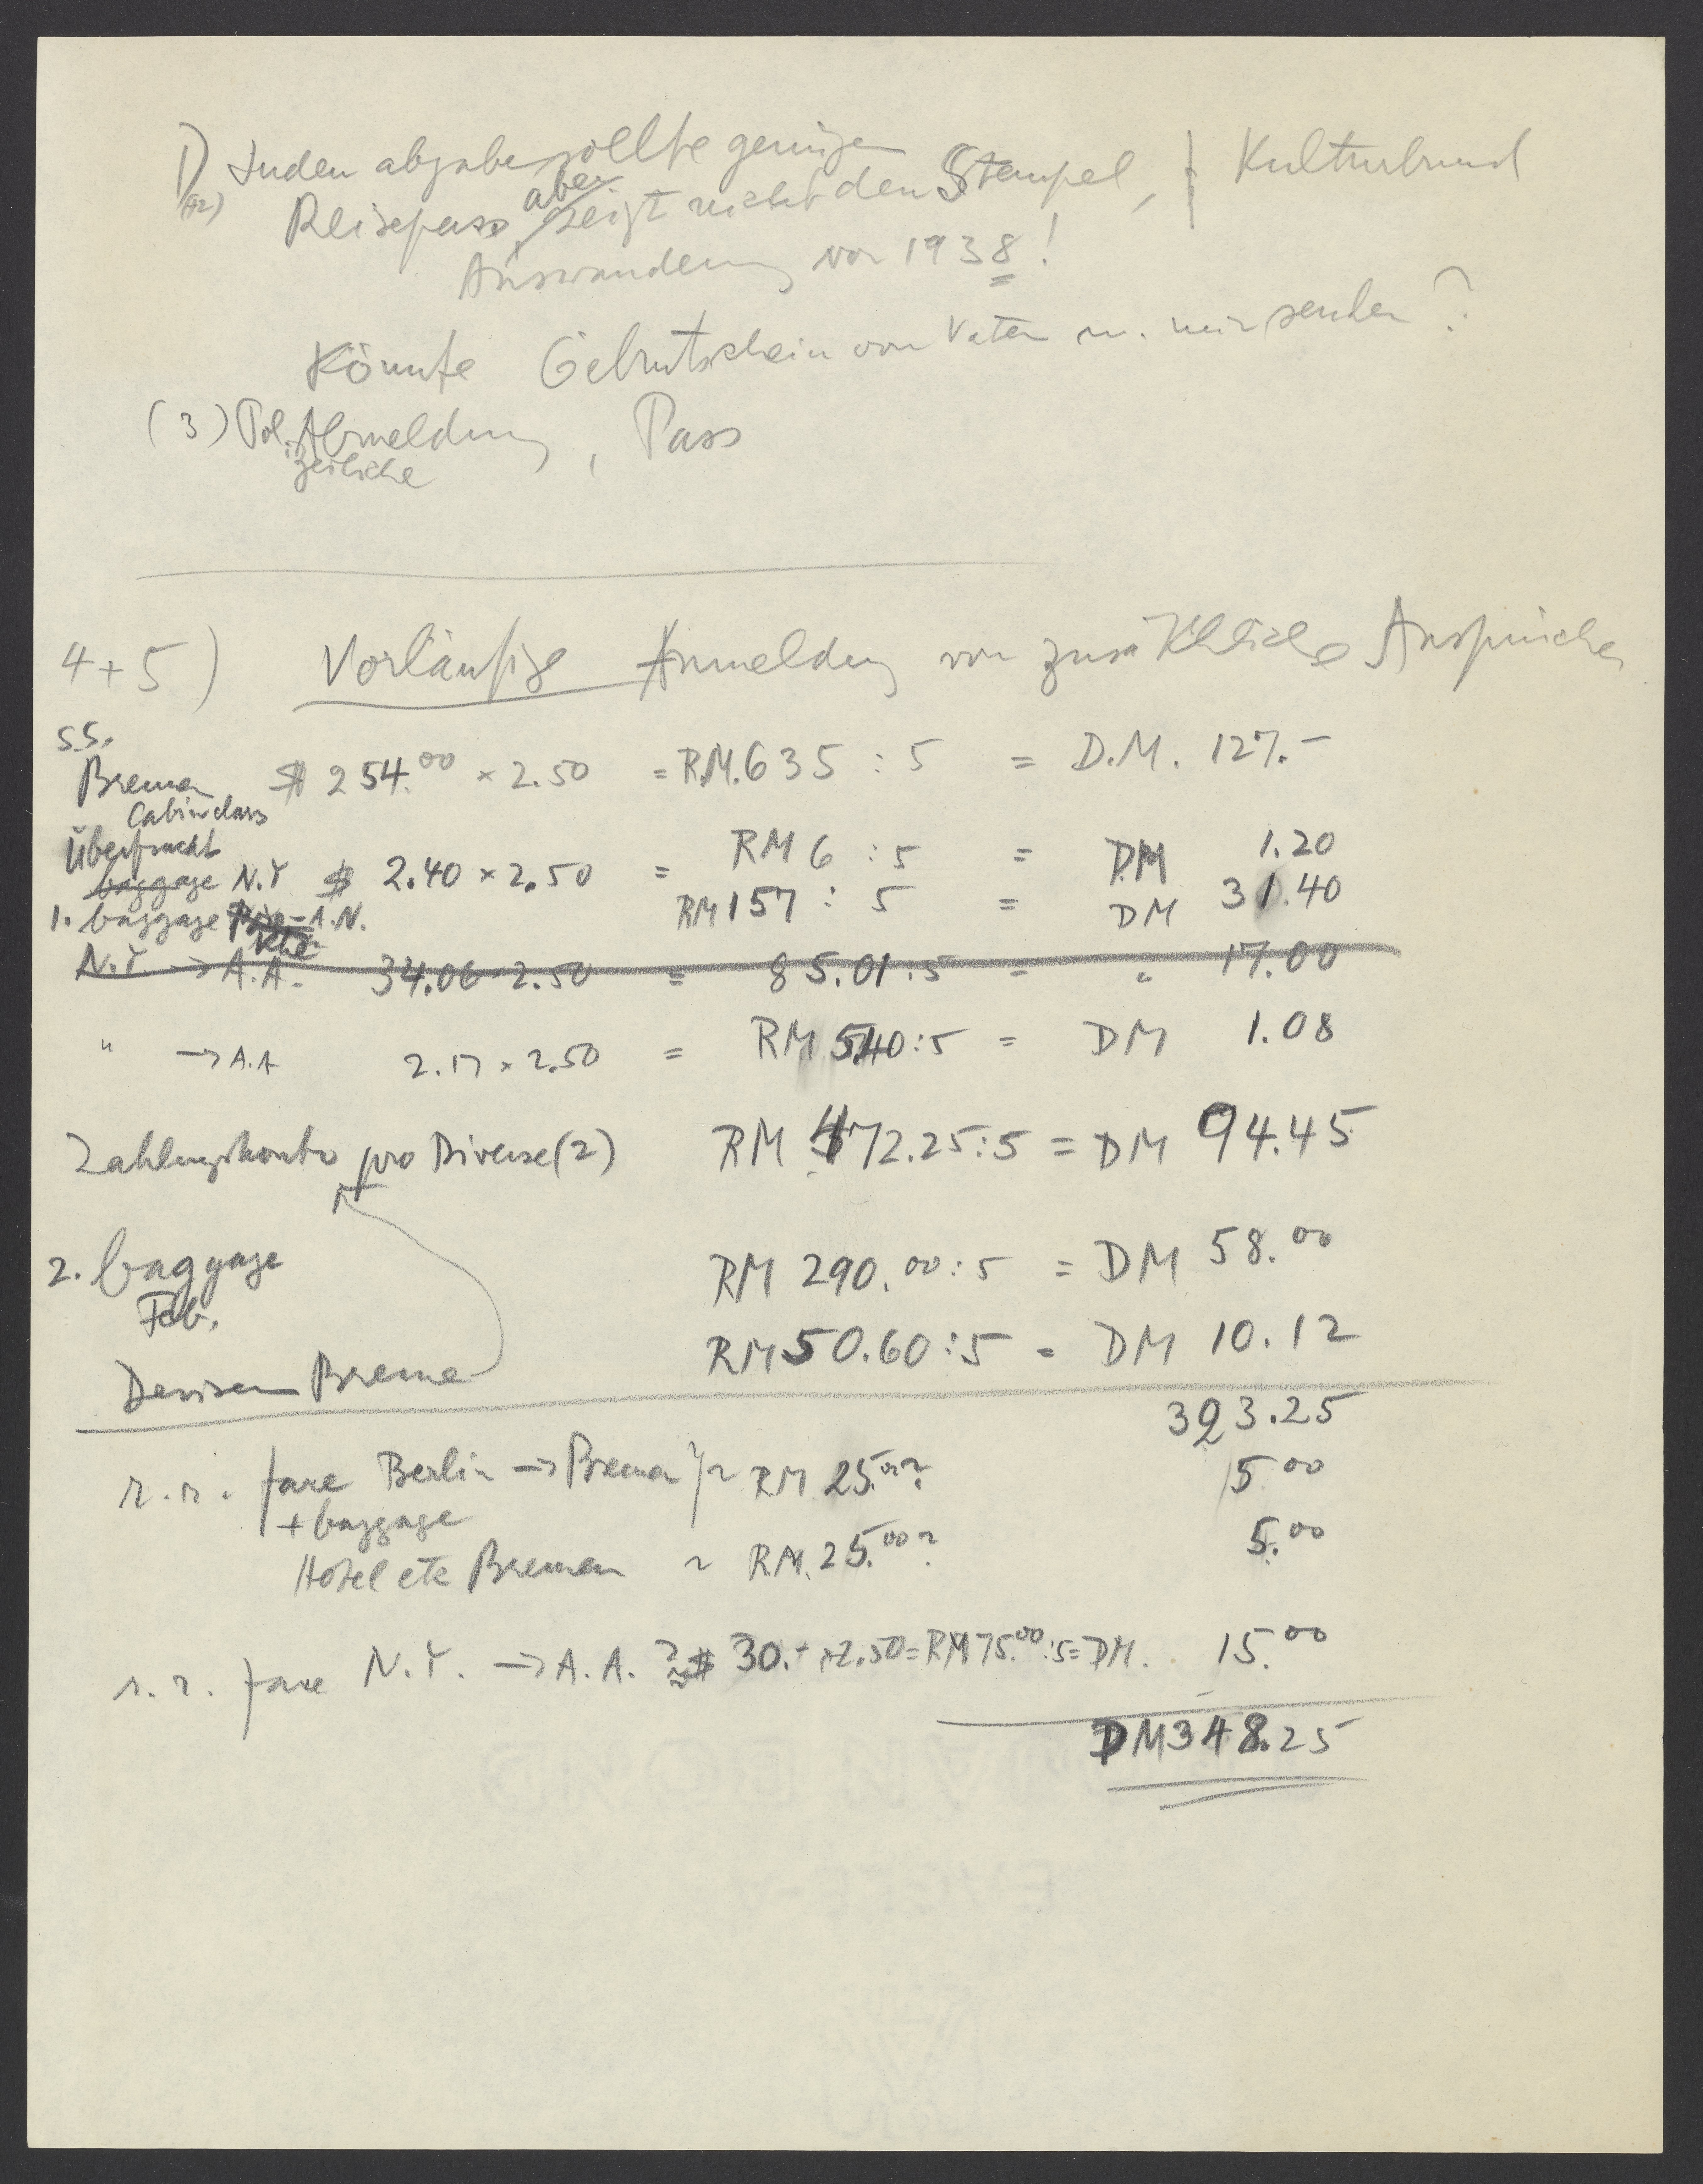 1) Judenabgabe sollte genügen } Kulturbund
(+2) Reisepass, aber zeigt nicht den Stempel,
Auswanderung vor 1938!
Könnte Geburtschein von Vater u. mir senden?
(3) Pol. Abmeldung, Pass
izeiliche
4+5) Vorläufige Anmeldung von zusätzliche Ansprüche
S.S.
Bremen $ 254.00 × 2.50 = R.M. 635 : 5 = D.M. 127.-
Cabin class
Überfracht
baggage N.Y $ 2.40 × 2.50 = RM 6 : 5 = DM 1.20
1. baggage A.N. RM 157 : 5 = DM 31.40
N.Y → A.A. 34.06 × 2.50 = 85.01 : 5 = " 17.00
" → A.A 2.17 × 2.50 = RM 5.40 : 5 = DM 1.08
Zahlungskonto pro Diverse (2) RM 472.25 : 5 = DM 94.45
2. baggage RM 290.00 : 5 = DM 58.00
Feb.
Devisen Bremen RM 50.60 : 5 = DM 10.12
323.25
r.r. fare Berlin → Bremen } ~ RM 25.00? 5.00
+ baggage
Hotel etc Bremen ~ RM. 25.00? 5.00
r.r. fare N.Y. → A.A. ? ≈ $ 30.- × 2.50 = RM 75.00 : 5 = DM. 15.00
DM 348.25